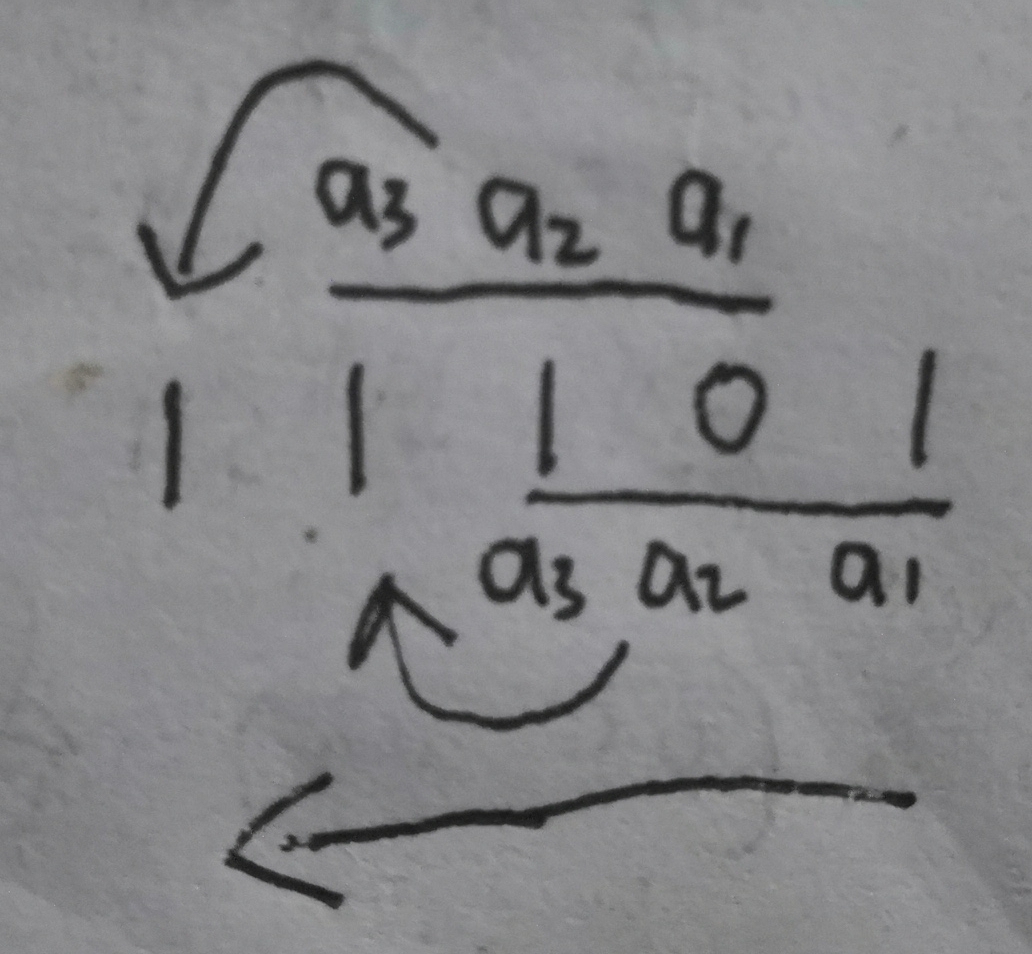 a3 a2 a1
1 1 1 0 1
a3 a2 a1